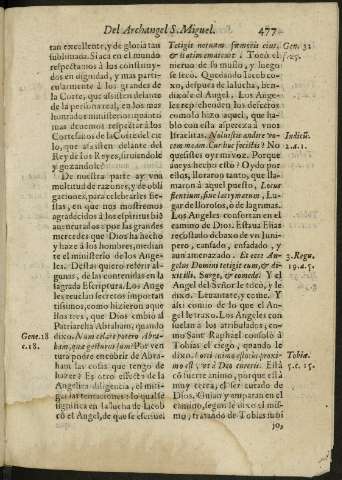 Del Archangel S. Miguel. 477
tan excellente, y de gloria tan
sublimada. Si acà en el mundo
respectamos à los constituy-
dos en dignidad, y mas parti-
cularmente à los grandes de
la Corte, que assisten delante
de la persona real, en los mas
honrados ministerios: quanto
mas devemos respectar à los
Cortesanos de la Corte del cie
lo, que assisten delante del
Rey de los Reyes, sirviendole
y gozandole?
De nuestra parte ay una
multitud de razones, y de obli
gaciones, para celebrarles fie-
stas, en que nos mostremos
agradecidos à los espiritus biẽ
aventurados: por las grandes
mercedes que Dios ha hecho
y haze à los hombres, median
te el ministerio de los Ange-
les. Destas quiero referir al-
gunas, de las contenidas en la
sagrada Escriptura. Los Ange
les revelan secretos importan
tissimos, como hizieron aque
llos tres, que Dios embiò al
Patriarcha Abraham, quando
dixo. Num celare potero Abra-
ham, quæ gesturus sum? Por ven
tura podrè encobrir de Abra-
ham las cosas que tengo de
hazer? Es otro effecto de la
Angelica diligencia, el miti-
gar las tentaciones: lo qual se
significa en la lucha de Iacob
cõ el Angel, de que se escrive.
Gene. 18
c. 18.
Tetigit nervum femoris eius,
& statim emarcuit. Tocò el
nervo de su muslo, y luego
se secò. Quedando Iacob co-
xo, despues de la lucha, ben-
dixole el Angel. Los Ange-
les reprehenden los defectos
como lo hizo aquel, que ha-
blò con esta aspereza à unos
Israelitas. Noluistis audire vo-
cem meam. Cur hoc fecistis? No
quesistes oyr mi voz. Porque
aveys hecho esto? Oydo por
ellos, lloraron tanto, que lla-
maron à aquel puesto, Locus
flentium, sive lacrymarum, Lu-
gar de llorosos, ò de lagrimas.
Los Angeles consortan en el
camino de Dios. Estava Elias
recostado debaxo de vn Iuni-
pero, cansado, ensadado, y
aun amenazado. Et ecce An-
gelus Domini tetigit eum, & di-
xit illi. Surge, & comede. Y el
Angel del Señor le tocò, y le
dixo. Levantate, y come. Y
assi comiò de lo que el An-
gel le traxo. Los Angeles con
suelan à los atribulados, co-
mo Sant Raphael consolò à
Tobias el ciego, quando le
dixo. Forti animo esto: in proxi-
mo est, ut à Deo cureris. Està
cõ fuerte animo, porque està
muy cerca, el ser curado de
Dios. Guian y amparan en el
camino, segun le dixo el mis-
mo, tratando de Tobias su hi
jo,
Gen. 32
v. 25.
Indicũ.
2. v. 2.
3. Regũ.
19. v. 5.
Tobiæ.
5. c. 15.